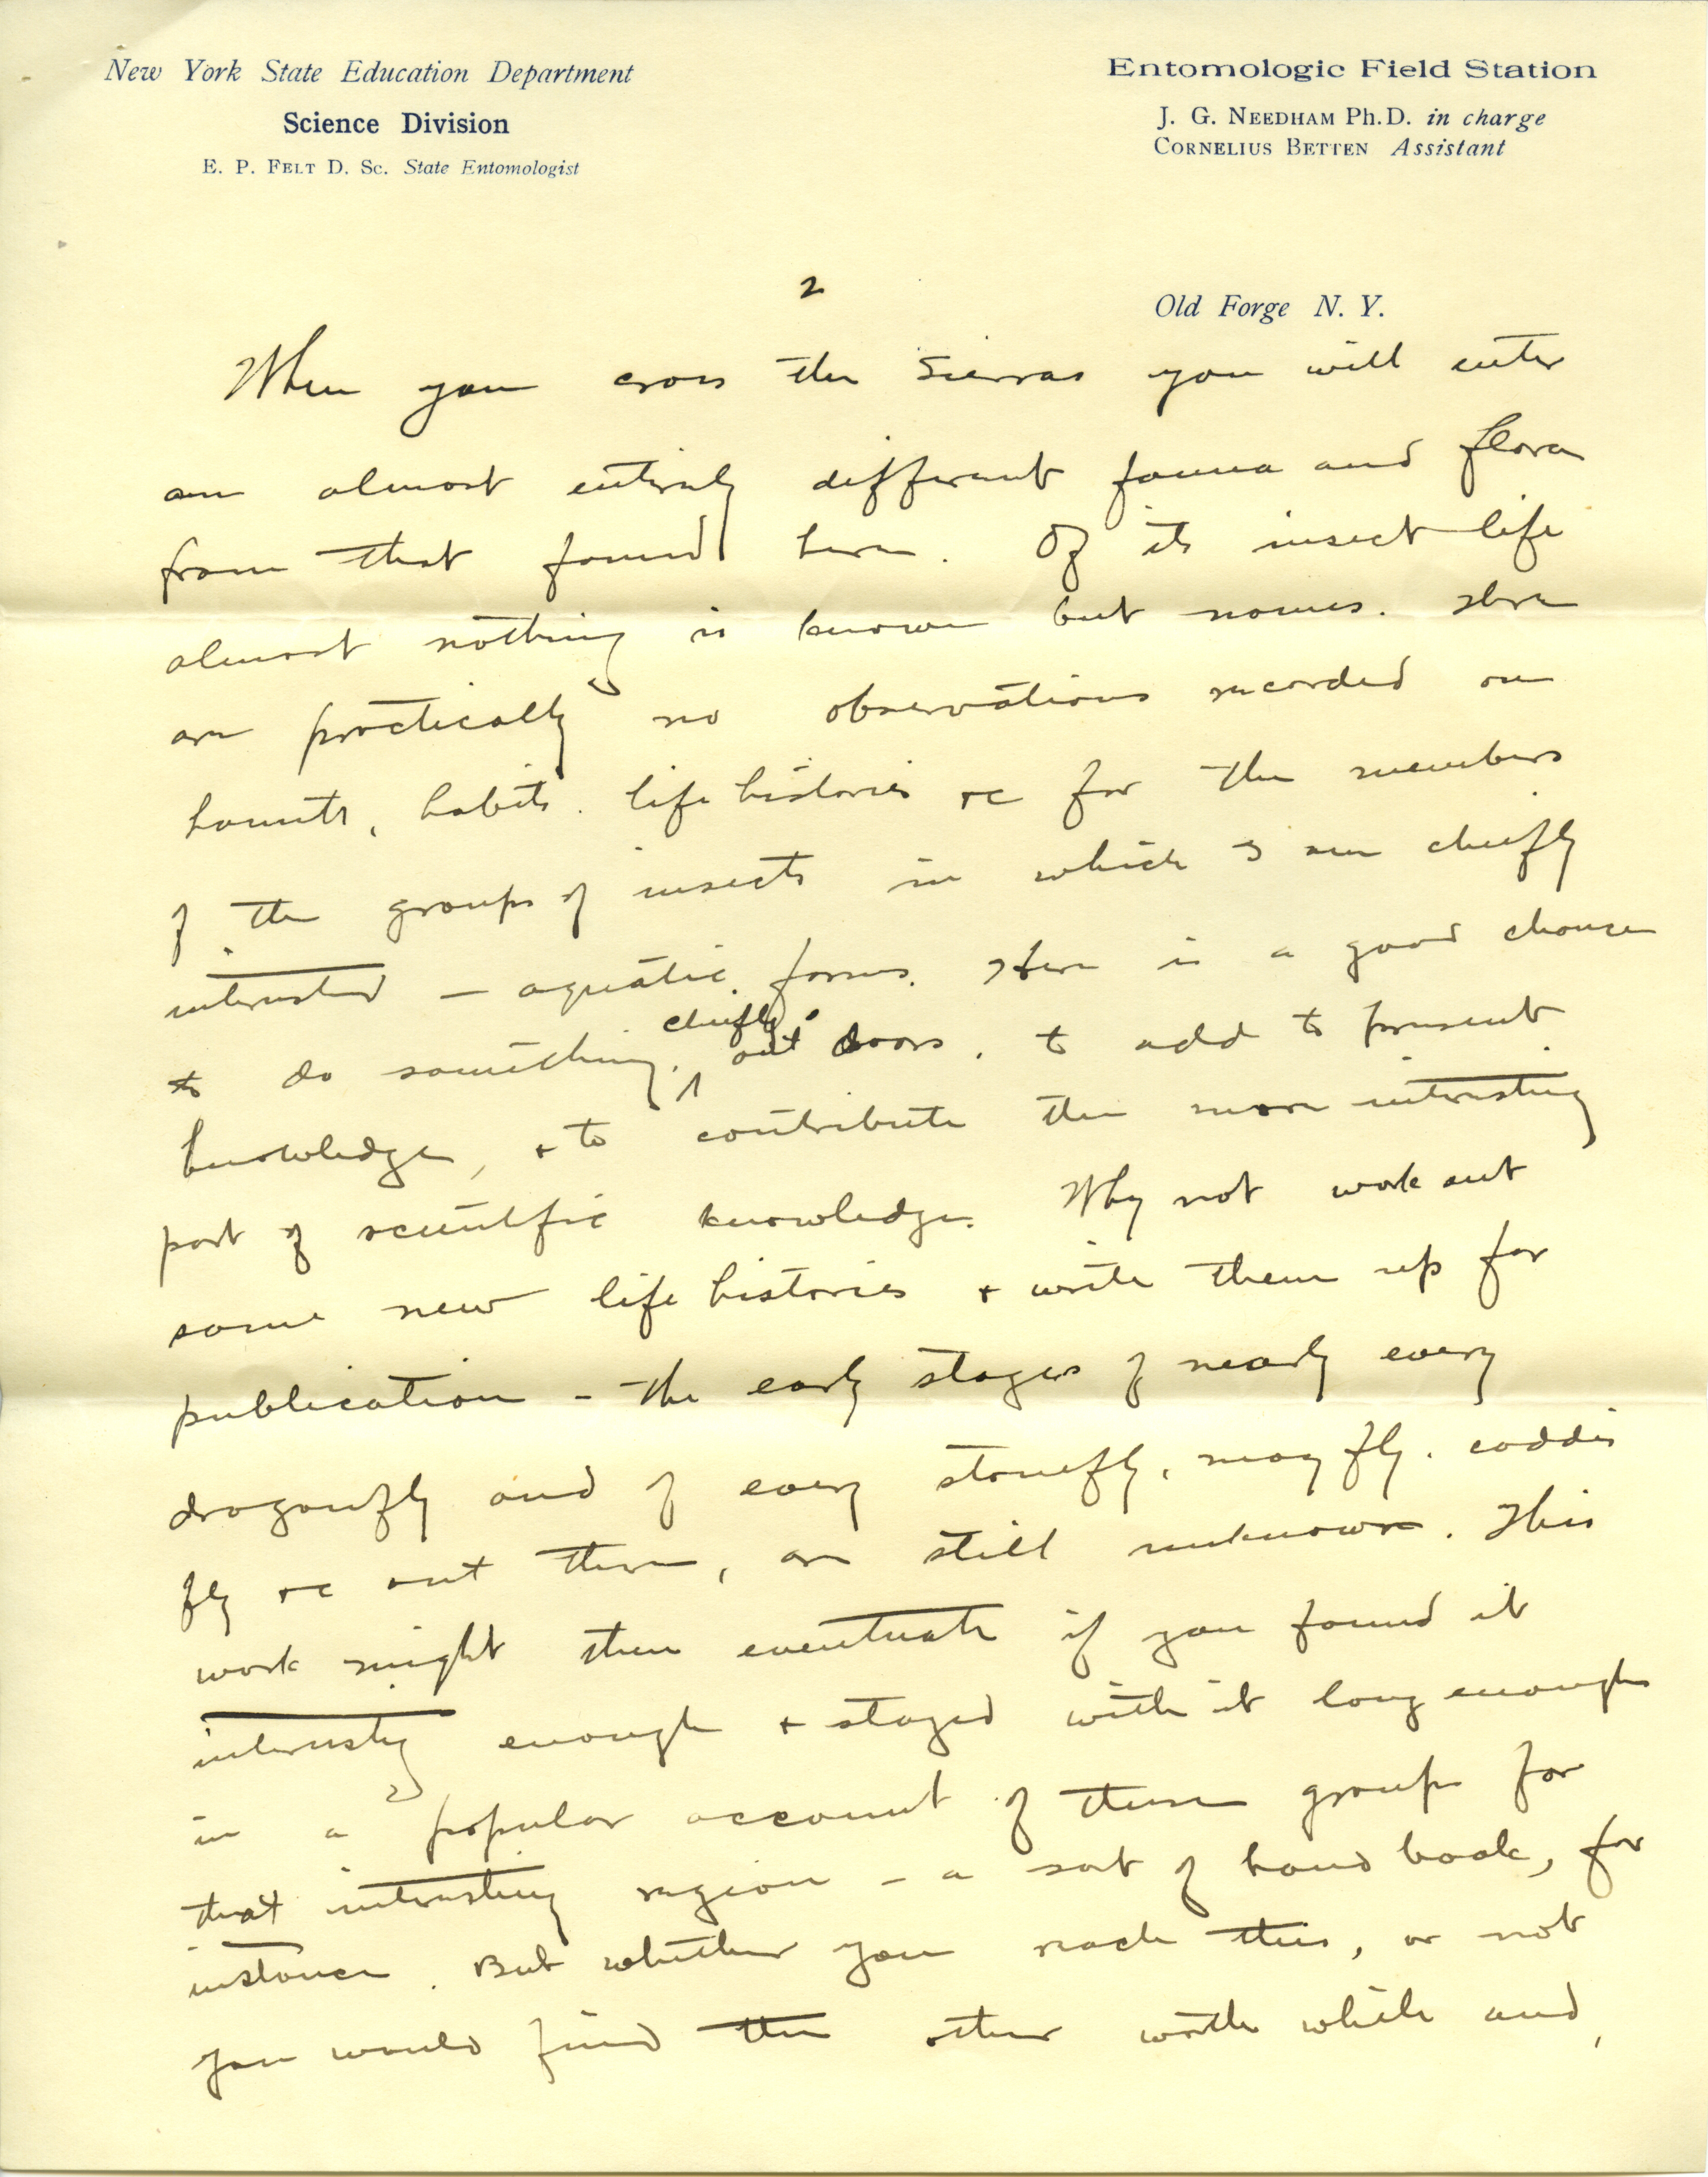 New York State Education Department
Science Division
E. P. FELT D. Sc. State Entomologist
Entomologic Field Station
J. G. NEEDHAM Ph.D. in charge
CORNELIUS BETTEN Assistant
2
Old Forge N. Y.
When you cross the Sierras you will enter
an almost entirely different fauna and flora
from that found here. Of its insect life
almost nothing is known but names. There
are practically no observations recorded on
haunts, habits. life histories &c for the members
of the groups of insects in which I am chiefly
interested — aquatic forms. Here is a good chance
to do something, chiefly out doors, to add to present
knowledge, & to contribute the more interesting
part of scientific knowledge. Why not work out
some new life histories & write them up for
publication - the early stages of nearly every
dragonfly and of every stonefly, may fly, caddis
fly &c out there, are still unknown. This
work might then eventuate if you found it
interestig enough & stayed with it long enough
in a popular account of these groups for
that interesting region - a sort of hand book, for
instance. But whether you reach this, or not
you would find the other worth while and,